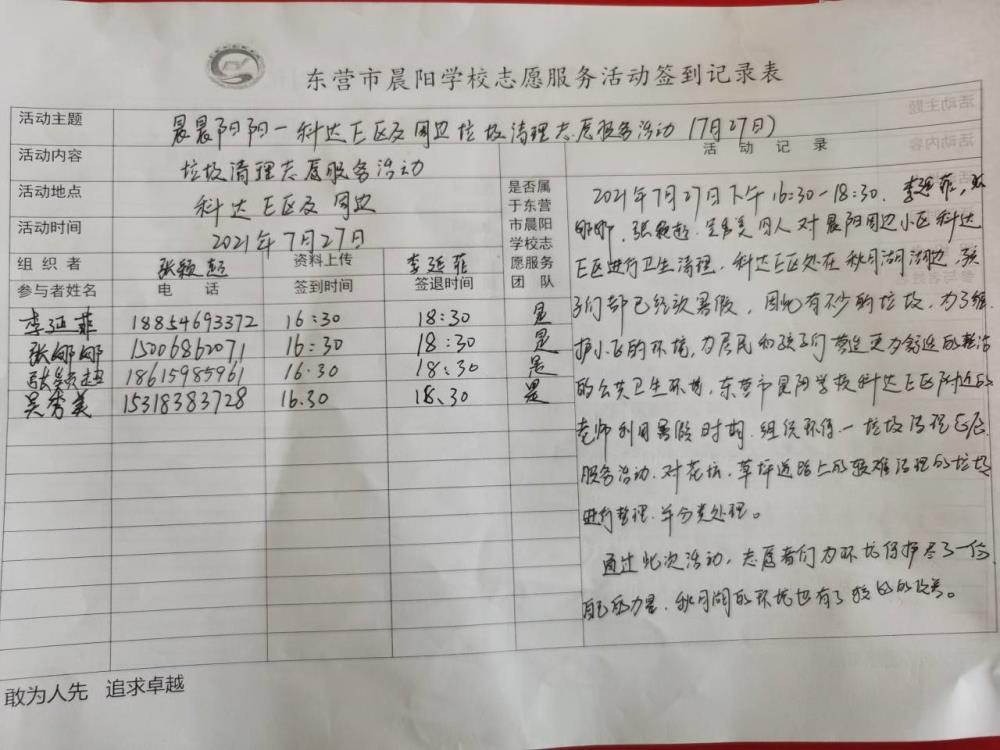 东营市晨阳学校志愿服务活动签到记录表
活动主题 晨晨阳阳一科达E区及周边垃圾清理志愿服务活动(7月27日)
活动内容 垃圾清理志愿服务活动
活动地点 科达E区及周边
活动时间 2021年7月27日
组织者 张颖超 资料上传 李延菲
是否属
于东营
市晨阳
学校志
愿服务
团队
参与者姓名 电话 签到时间 签退时间
李延菲 18854693372 16:30 18:30 是
张娜娜 15006862071 16:30 18:30 是
张颖超 18615985961 16:30 18:30 是
吴秀美 15318383728 16.30 18.30 是
活动记录
2021年7月27日下午16:30-18:30.李延菲,张
娜娜.张颖超.吴秀美四人对晨阳周边小区科达
E区进行卫生清理.科达E区处在秋月湖湖边.孩
子们都已经放暑假,因此有不少的垃圾,为了维
护小区的环境,为居民和孩子们营造更为舒适的整洁
的公共卫生环境,东营市晨阳学校科达E区附近的
老师利用暑假时期.组织环保一垃圾清理志愿
服务活动.对花坛.草坪道路上的较难清理的垃圾
进行整理.并分类处理。
通过此次活动,志愿者们为环境保护尽了一份
自己的力量.秋月湖的环境也有了较的改善。
敢为人先 追求卓越